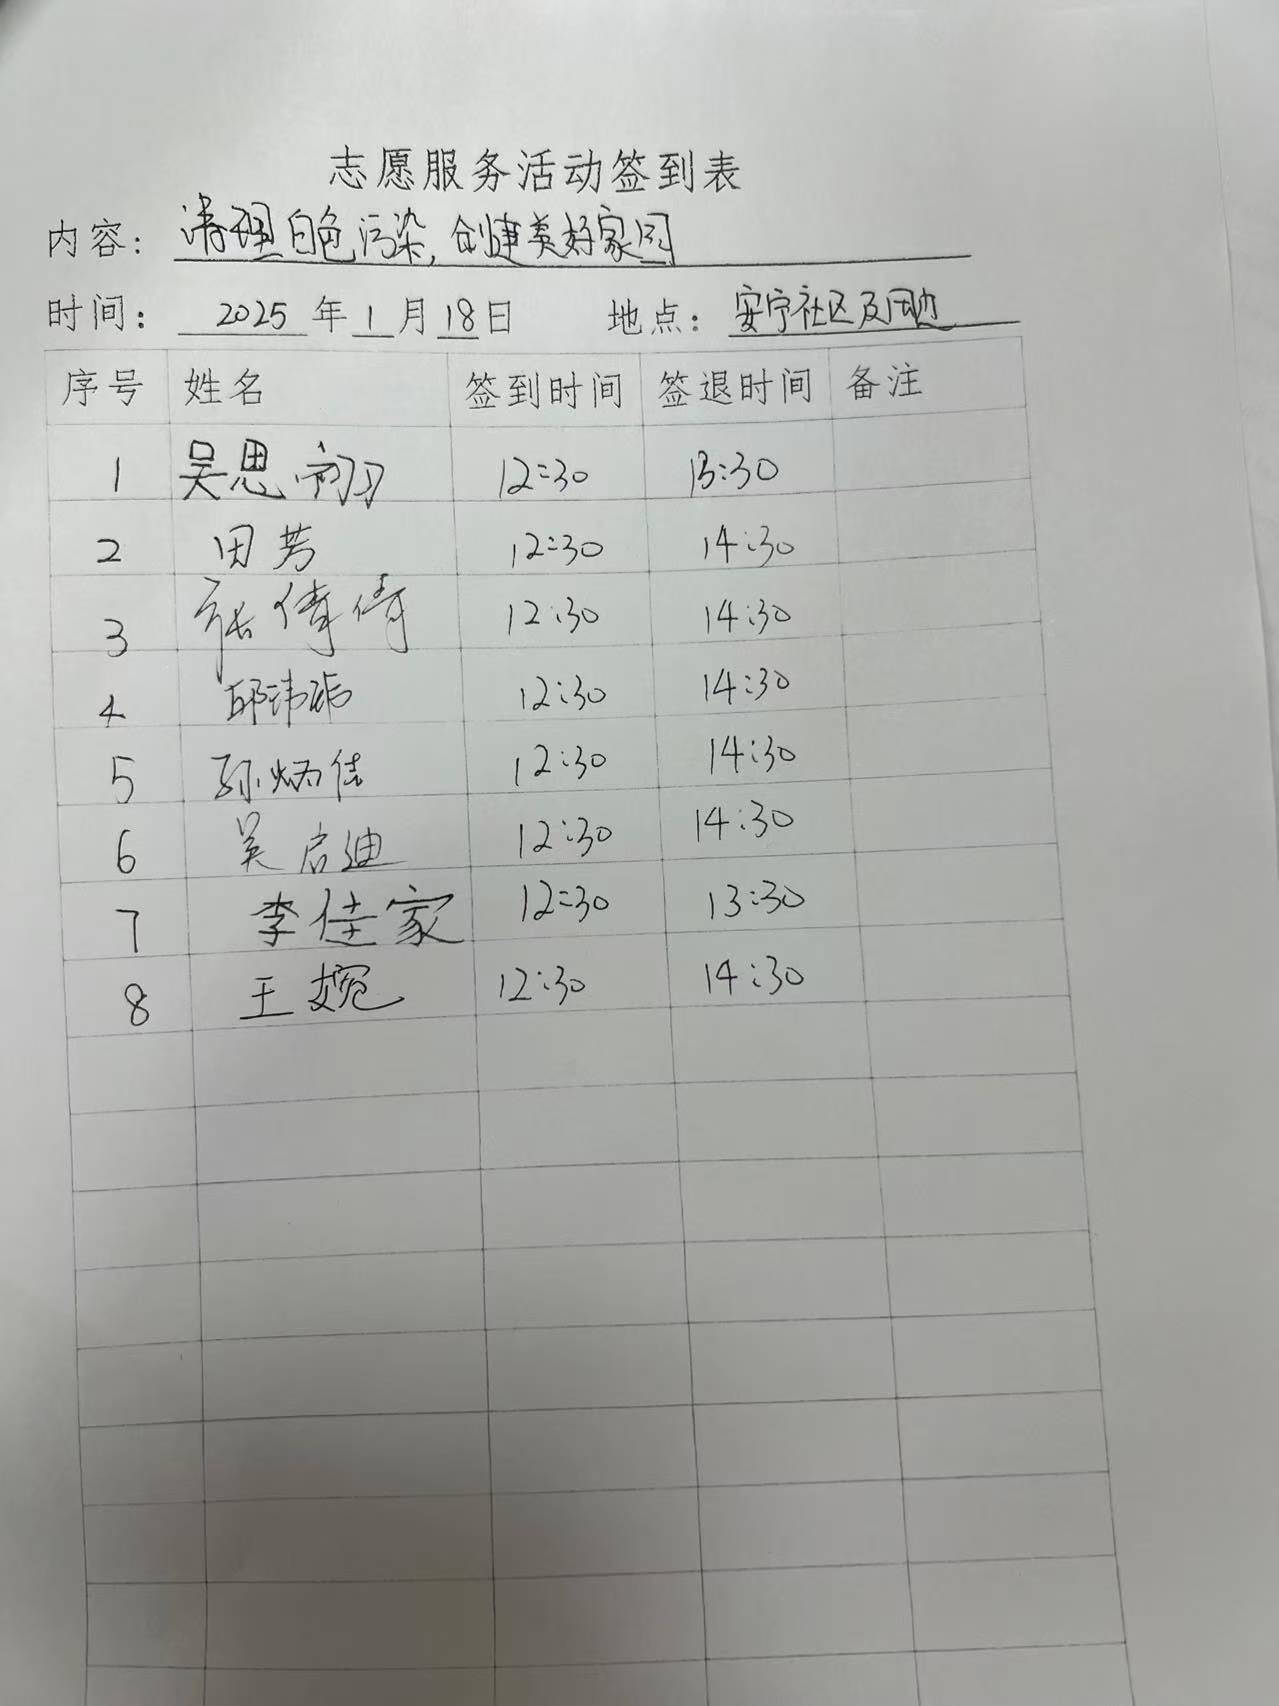 志愿服务活动签到表
内容： 清理白色污染，创建美好家园
时间： 2025 年 1 月 18 日 地点： 安宁社区及周边
序号 姓名 签到时间 签退时间 备注
1 吴思 12:30 13:30
2 田芳 12:30 14:30
3 张倩倩 12:30 14:30
4 邱玮 12:30 14:30
5 孙炳佳 12:30 14:30
6 吴启迪 12:30 14:30
7 李佳家 12:30 13:30
8 王婉 12:30 14:30